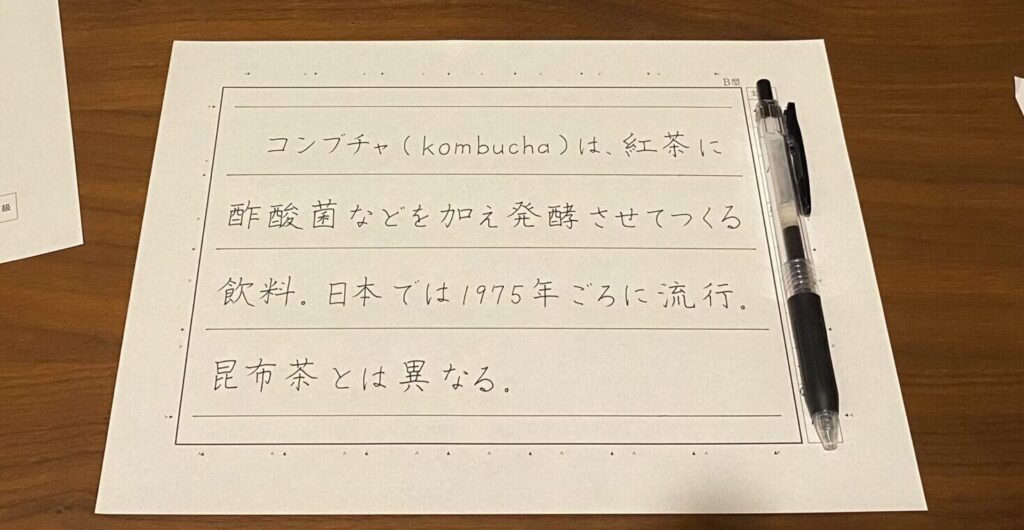 B型
コンブチャ(kombucha)は、紅茶に
酢酸菌などを加え発酵させてつくる
飲料。日本では1975年ごろに流行。
昆布茶とは異なる。
級